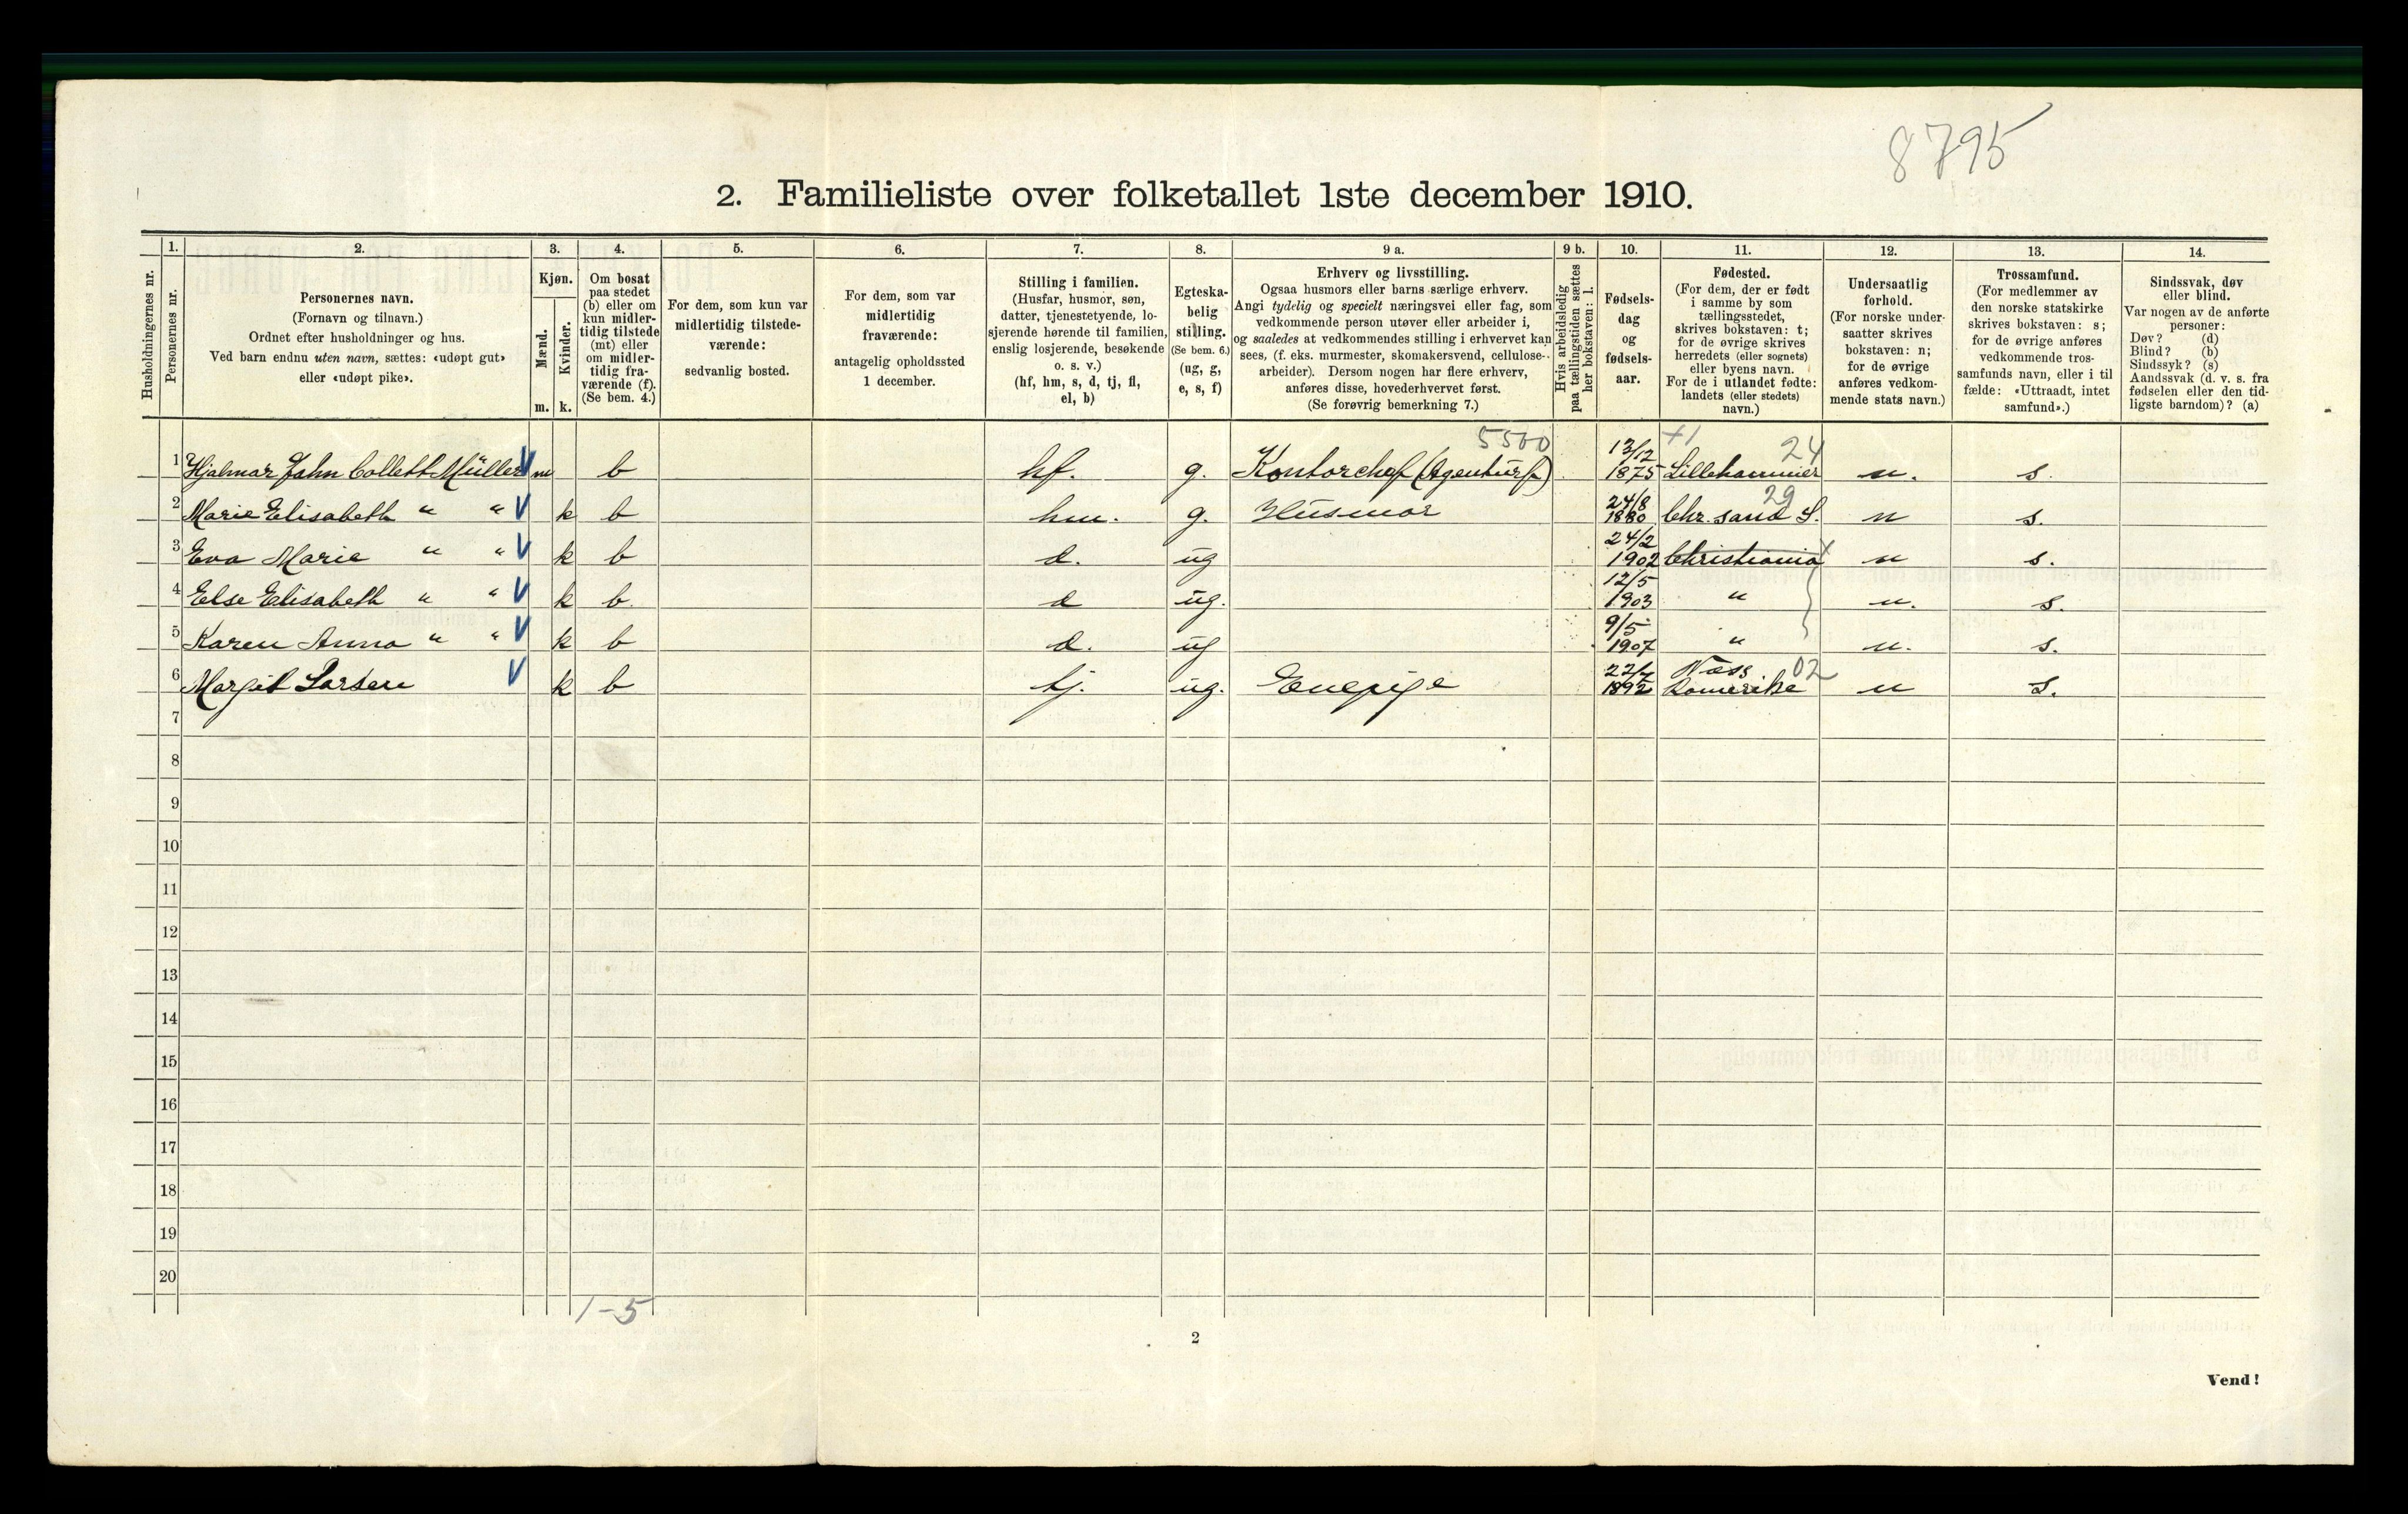 8795
2. Familieliste over folketallet 1ste december 1910.
Husholdningernes nr.
1.
Personernes nr.
2.
Personernes navn.
(Fornavn og tilnavn.)
Ordnet efter husholdninger og hus.
Ved barn endnu uten navn, sættes: «udøpt gut»
eller «udøpt pike».
3.
Kjøn.
Mænd.
m.
Kvinder.
k.
4.
Om bosat
paa stedet
(b) eller om
kun midler-
tidig tilstede
(mt) eller
om midler-
tidig fra-
værende (f).
(Se bem. 4.)
5.
For dem, som kun var
midlertidig tilstede-
værende:
sedvanlig bosted.
6.
For dem, som var
midlertidig
fraværende:
antagelig opholdssted
1 december.
7.
Stilling i familien.
(Husfar, husmor, søn,
datter, tjenestetyende, lo-
sjerende hørende til familien,
enslig losjerende, besøkende
o. s. v.)
(hf, hm, s, d, tj, fl,
el, b)
8.
Egteska-
belig
stilling.
(Se bem. 6.)
(ug, g,
e, s, f)
9 a.
Erhverv og livsstilling.
Ogsaa husmors eller barns særlige erhverv.
Angi tydelig og specielt næringsvei eller fag, som
vedkommende person utøver eller arbeider i,
og saaledes at vedkommendes stilling i erhvervet kan
sees, (f. eks. murmester, skomakersvend, cellulose-
arbeider). Dersom nogen har flere erhverv,
anføres disse, hovederhvervet først.
(Se forøvrig bemerkning 7.)
9 b.
Hvis arbeidsledig
paa tællingstiden sættes
her bokstaven: l.
10.
Fødsels-
dag
og
fødsels-
aar.
11.
Fødested.
(For dem, der er født
i samme by som
tællingsstedet,
skrives bokstaven: t;
for de øvrige skrives
herredets (eller sognets)
eller byens navn.
For de i utlandet fødte:
landets (eller stedets)
navn.)
12.
Undersaatlig
forhold.
(For norske under-
saatter skrives
bokstaven: n;
for de øvrige
anføres vedkom-
mende stats navn.)
13.
Trossamfund.
(For medlemmer av
den norske statskirke
skrives bokstaven: s;
for de øvrige anføres
vedkommende tros-
samfunds navn, eller i til
fælde: «Uttraadt, intet
samfund».)
14.
Sindssvak, døv
eller blind.
Var nogen av de anførte
personer:
Døv? (d)
Blind? (b)
Sindssyk? (s)
Aandssvak (d. v. s. fra
fødselen eller den tid-
ligste barndom)? (a)
5500 13/12 24
1 Hjalmar John Collett Müller V m b hf. g. Kontorchef (Agenturf) 1875 Lillehammer n. s.
24/8 29
2 Marie Elisabeth " " V k b hm. g. Husmor 1880 Chr. sand S. n s.
24/2
3 Eva Marie " " V k b d. ug 1902 Christiania n s.
12/5
4 Else Elisabeth " " V k b. d ug. 1903 " n. s.
9/5
5 Karen Anna " " V k b d. ug 1907 " n. s.
Næss 02
6 Margit Larsen V k b tj. ug. Enepige 1892 Romerike n s.
7
8
9
10
11
12
13
14
15
16
17
18
19
20
1-5
2
Vend!